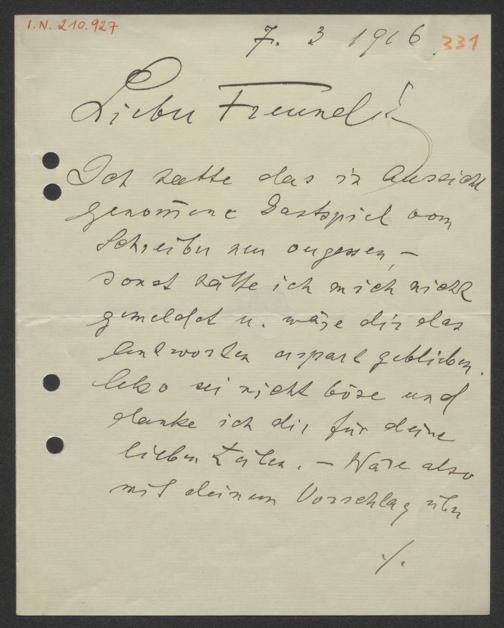 I.N. 210.927
7. 3 1916
331
Lieber Freund!
Ich hatte das in Aussicht
genom̄ene Gastspiel vom
Schreiber nun vergessen, –
sonst hätte ich mich nicht
gemeldet u. wäre dir das
Antworten erspart geblieben.
Also sei nicht böse und
danke ich dir für deine
lieben Zeilen. – Wäre also
mit deinem Vorschlag
./.